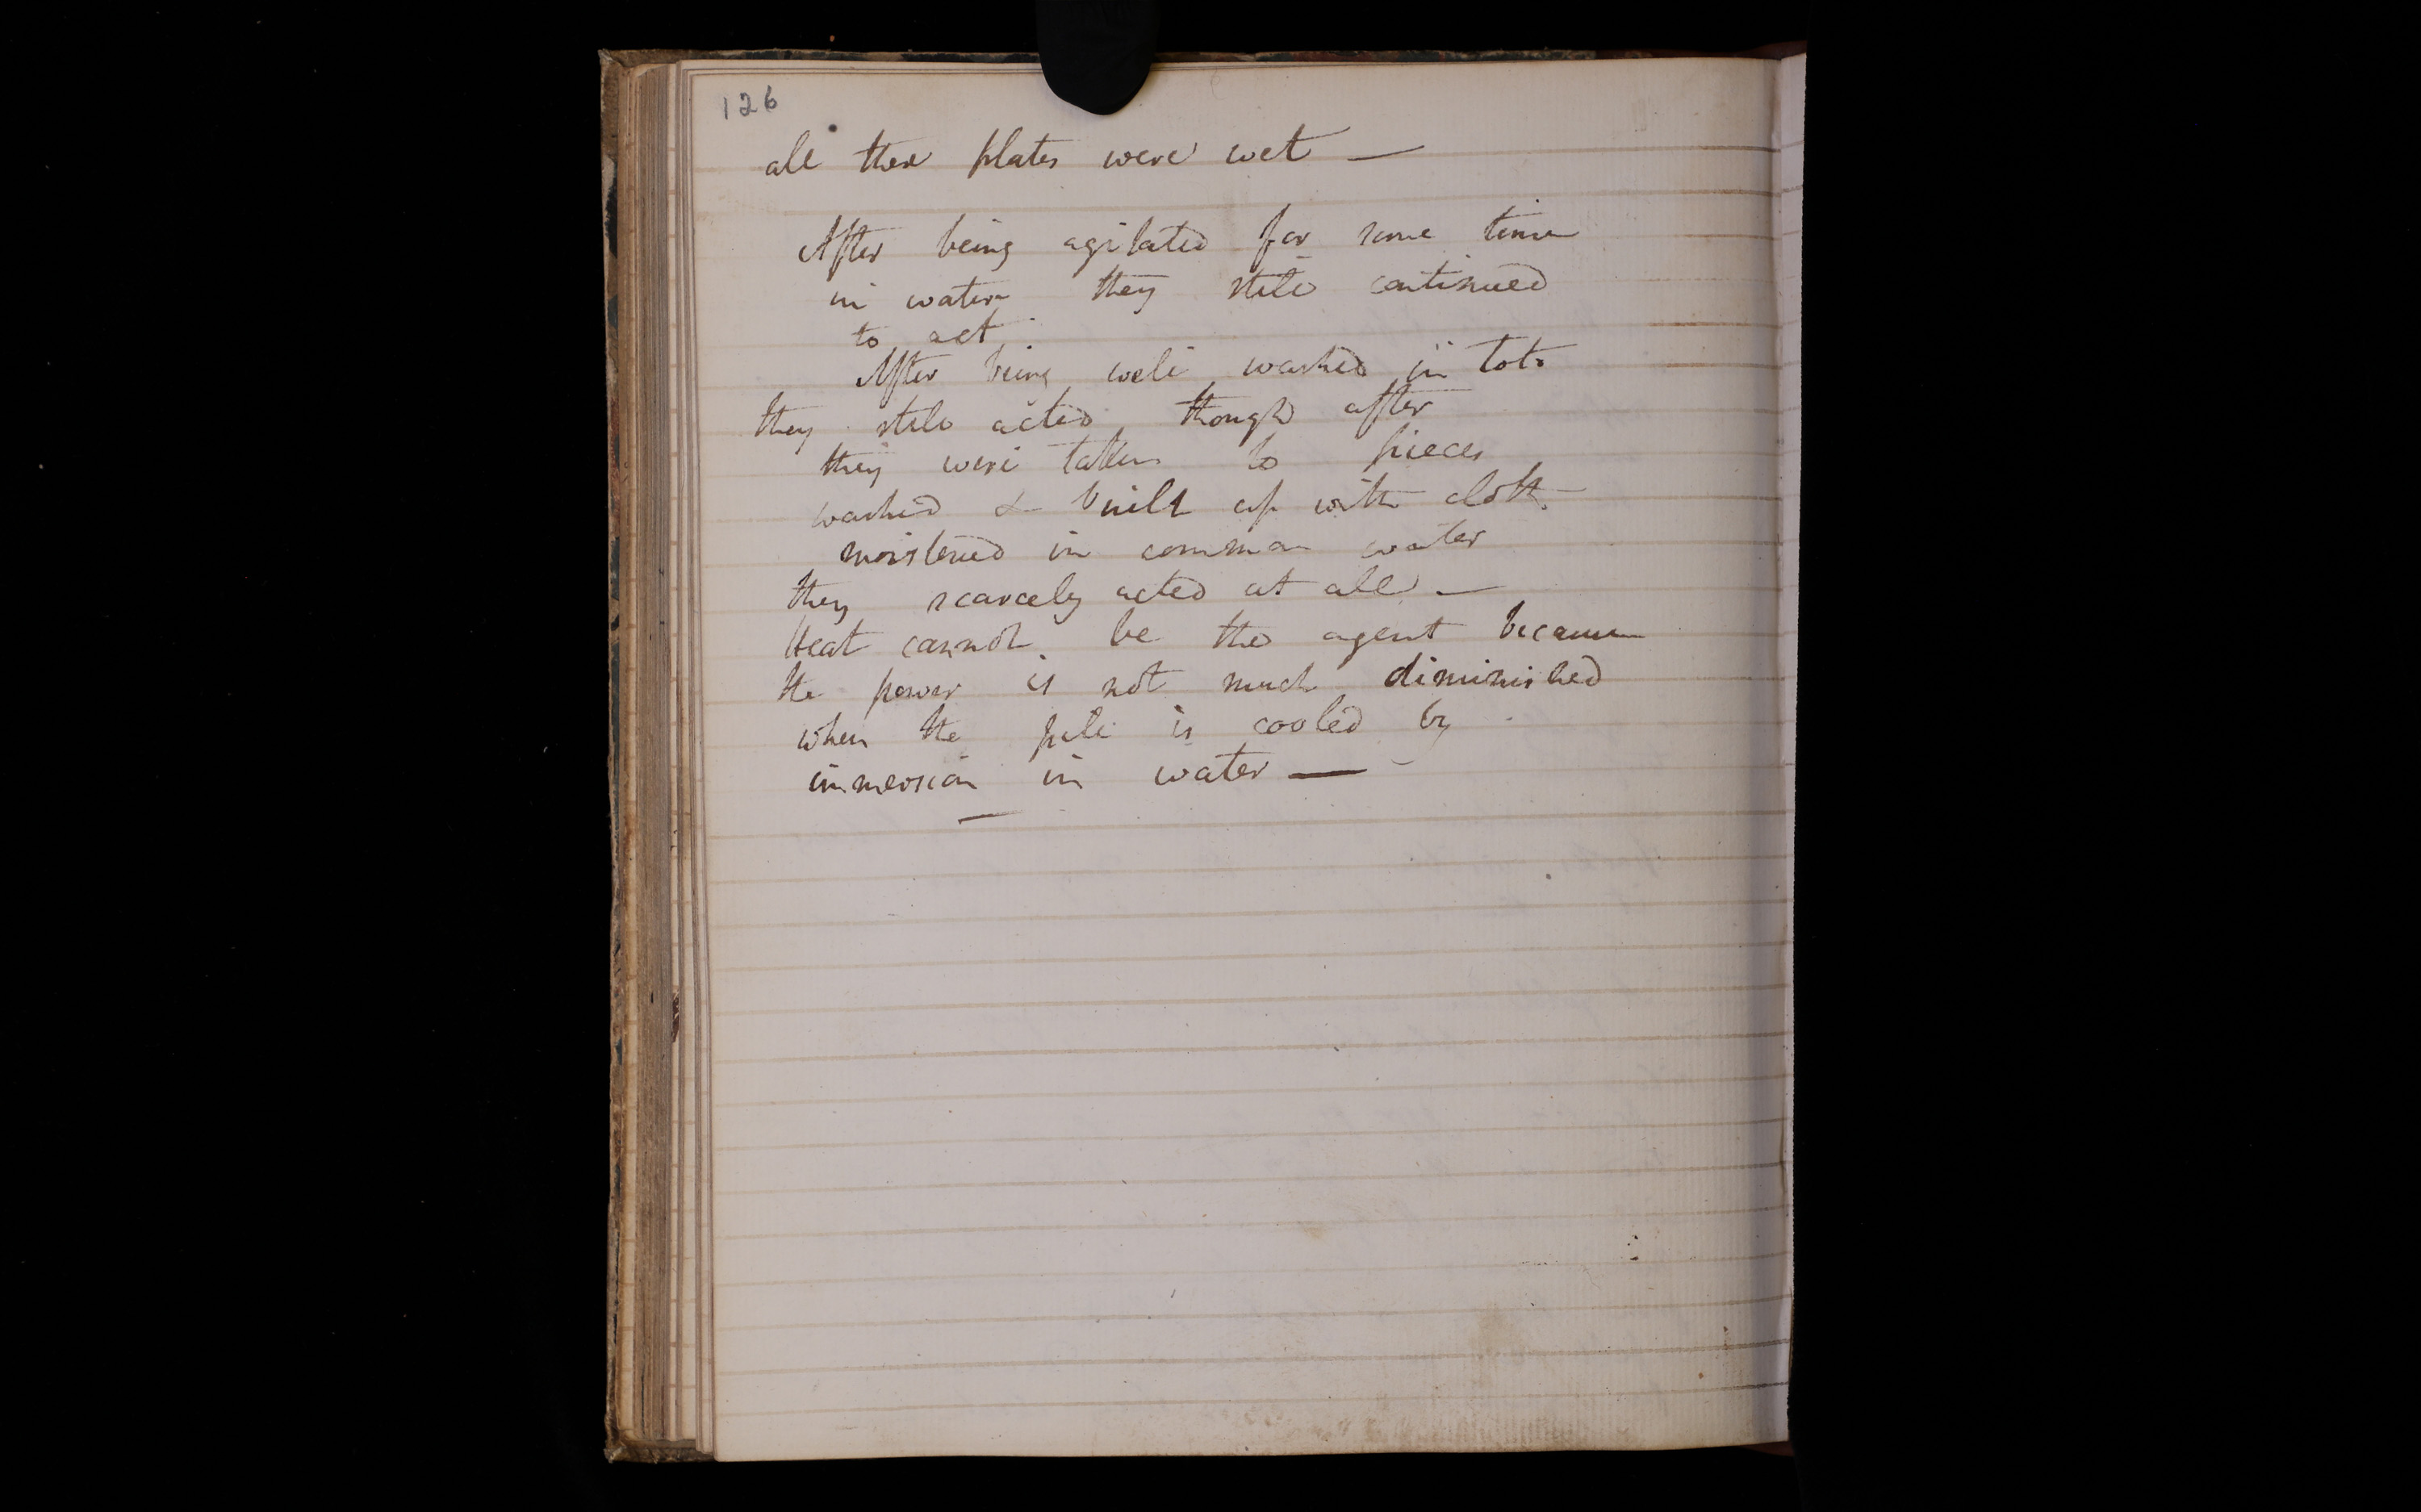 126
all these plates were wet —
After being agitated for some time
in water they still continued
to act.
After being well washed in toto
they still acted though after
they were taken to pieces
washed & built up with cloth
moistened in common water
they scarcely acted at all —
Heat cannot be the agent because
the power is not much diminished
when the pile is cooled by
immersion in water —